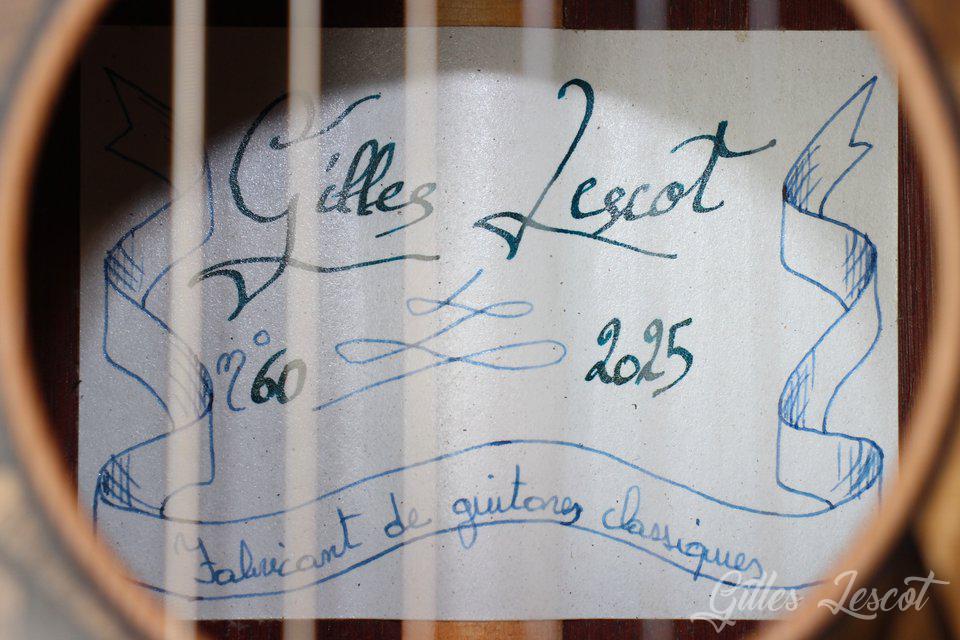 Gilles Lescot
n°60 2025
Fabricant de guitares classiques
Gilles Lescot